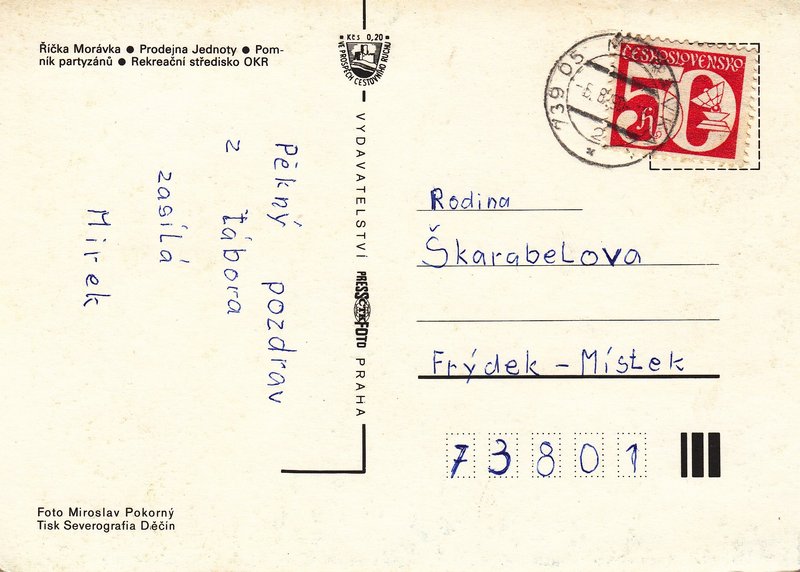 Říčka Morávka ● Prodejna Jednoty ● Pom-
ník partyzánů ● Rekreační středisko OKR
Kčs 0,20
VE PROSPĚCH CESTOVNÍHO RUCHU
VYDAVATELSTVÍ PRESSFOTO PRAHA
ČTK
739 05
2
ČESKOSLOVENSKO
50
h
Pěkný pozdrav
z tábora
zasílá
Mirek
Rodina
Škarabelova
Frýdek - Místek
73801
Foto Miroslav Pokorný
Tisk Severografia Děčín